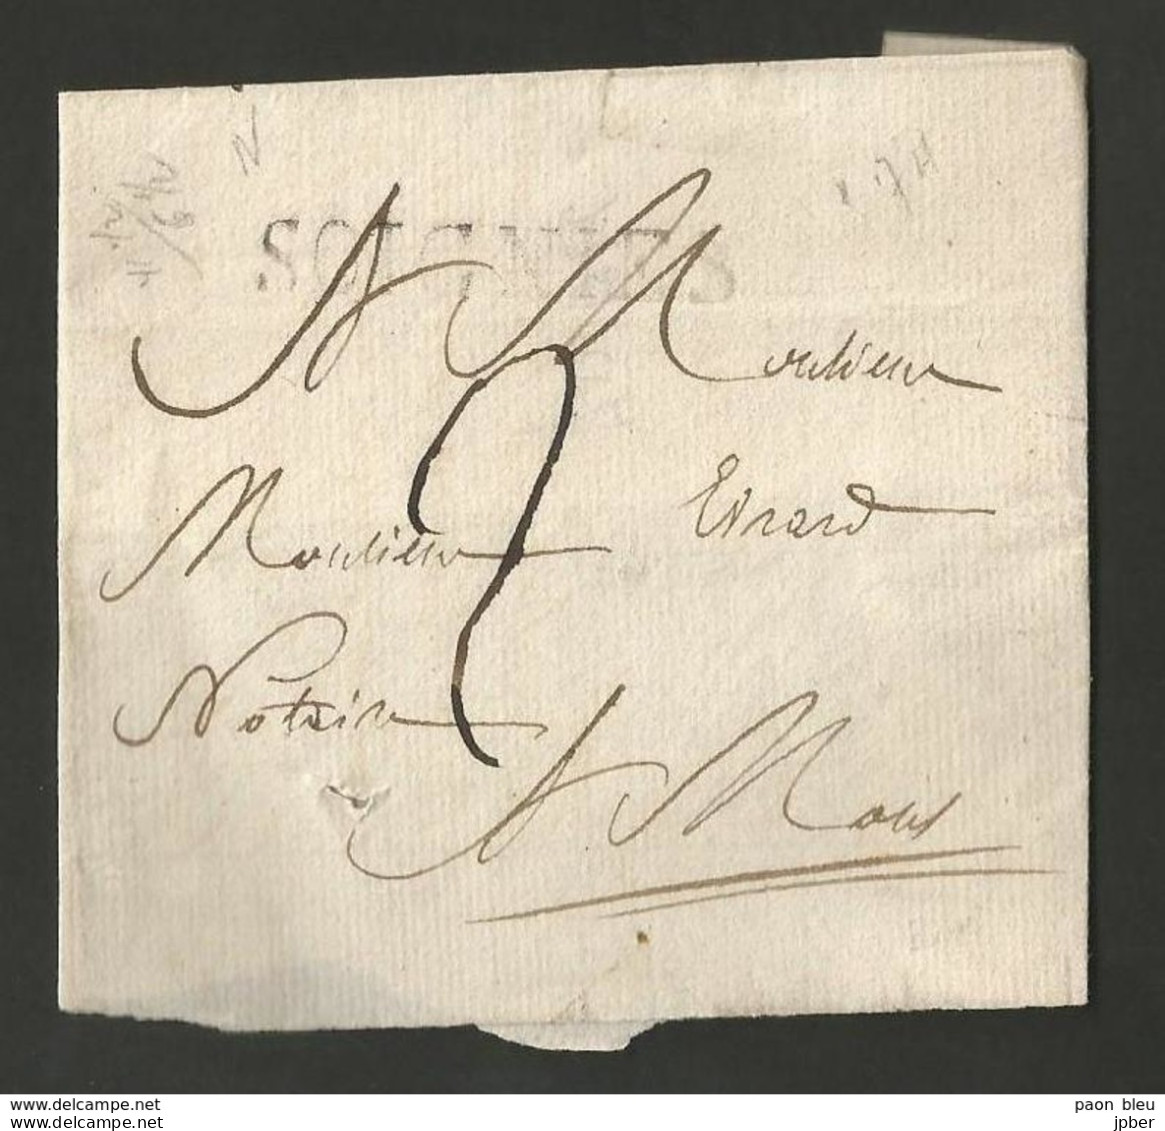 SOIGNIES
A Monsieur
2
Monsieur Evrard
Notaire
A Mons
paon bleu
delcampe.net
jpber